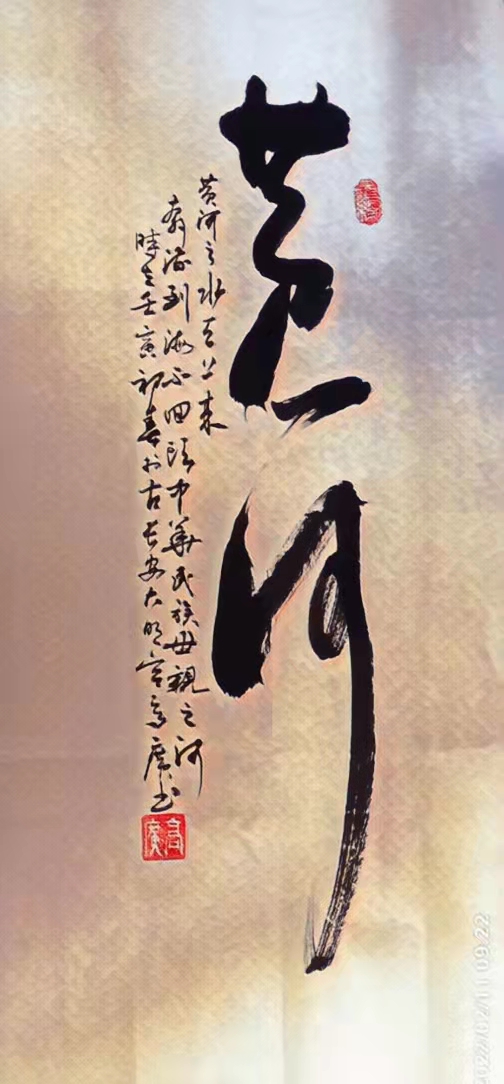 黄河
黄河之水天上来
奔流到海不回头中华民族母親之河
時在壬寅初春於古长安大明宫高广书
2022/02/11 09:22